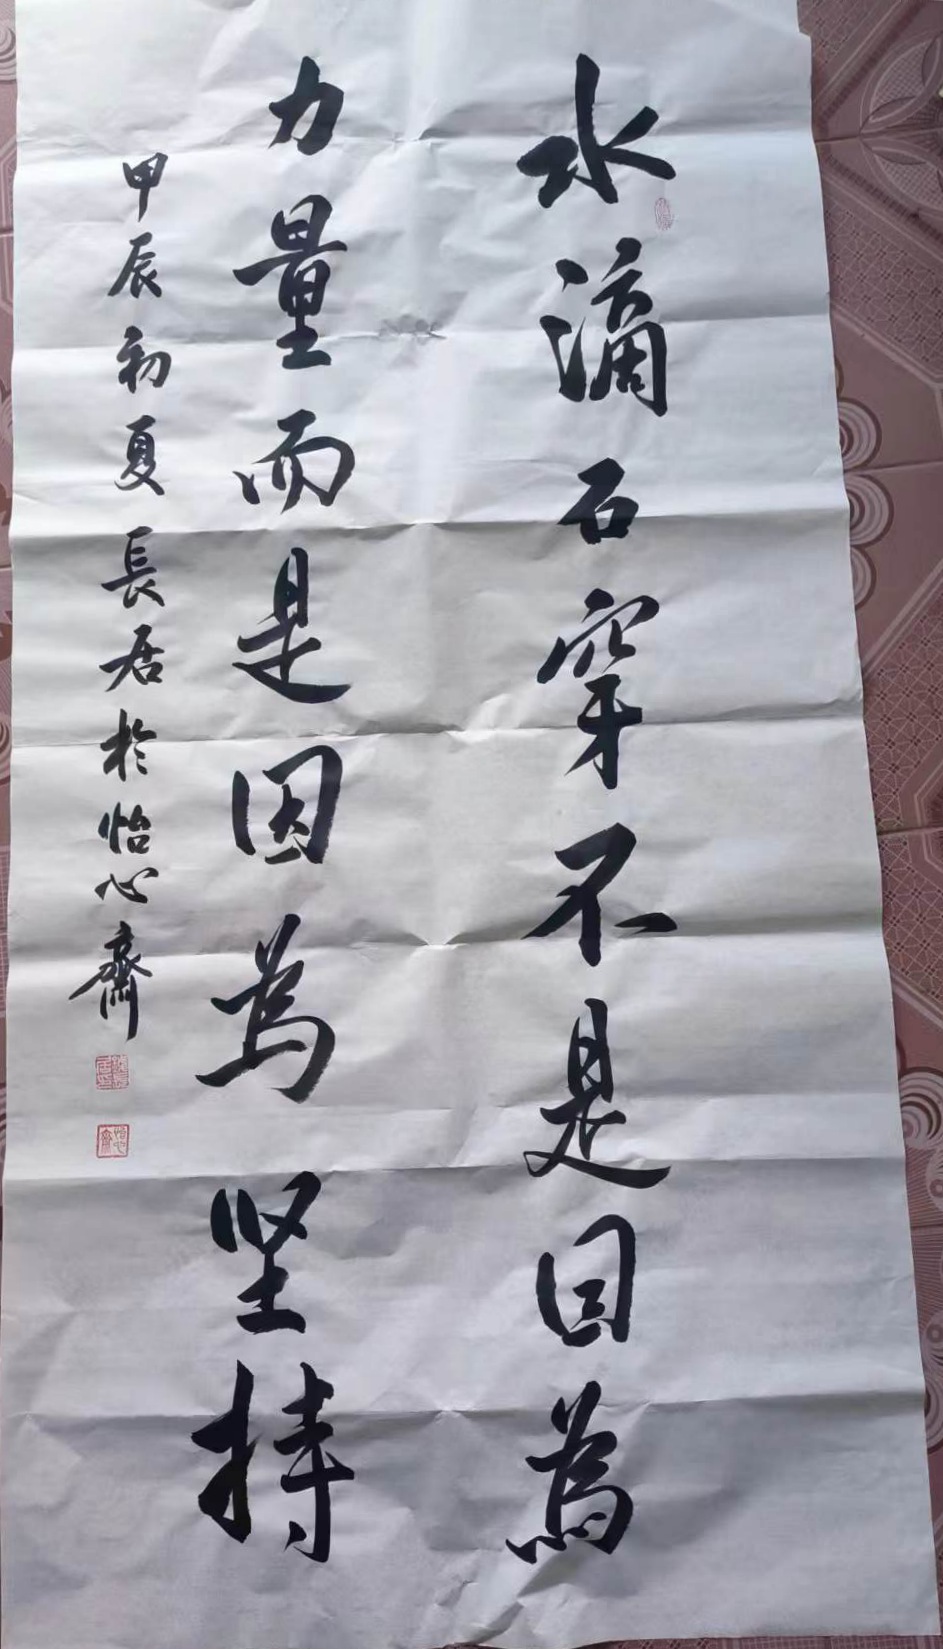 水滴石穿不是因為
力量而是因為坚持
甲辰初夏長居於怡心齋